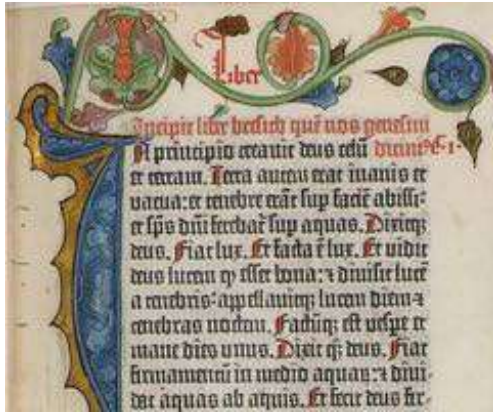 Liber
Incipit liber bresich quē nos genesim
In principio creavit deus celū dicimꝰ C·1·
et terram. Terra autem erat inanis et
vacua: et tenebre erāt sup faciē abissi:
et spūs dn̄i ferebat̄ sup aquas. Dixitq̄ȝ
deus. Fiat lux. Et facta ē lux. Et vidit
deus lucem ꝙ esset bona: ⁊ divisit lucē
a tenebris: appellavitq̄ȝ lucem diem ⁊
tenebras noctem. Factūq̄ȝ est vespe et
mane dies unus. Dixit q̄ȝ deus. Fiat
firmamentū in medio aquarū: ⁊ divi-
dat aquas ab aquis. Et fecit deus fir-